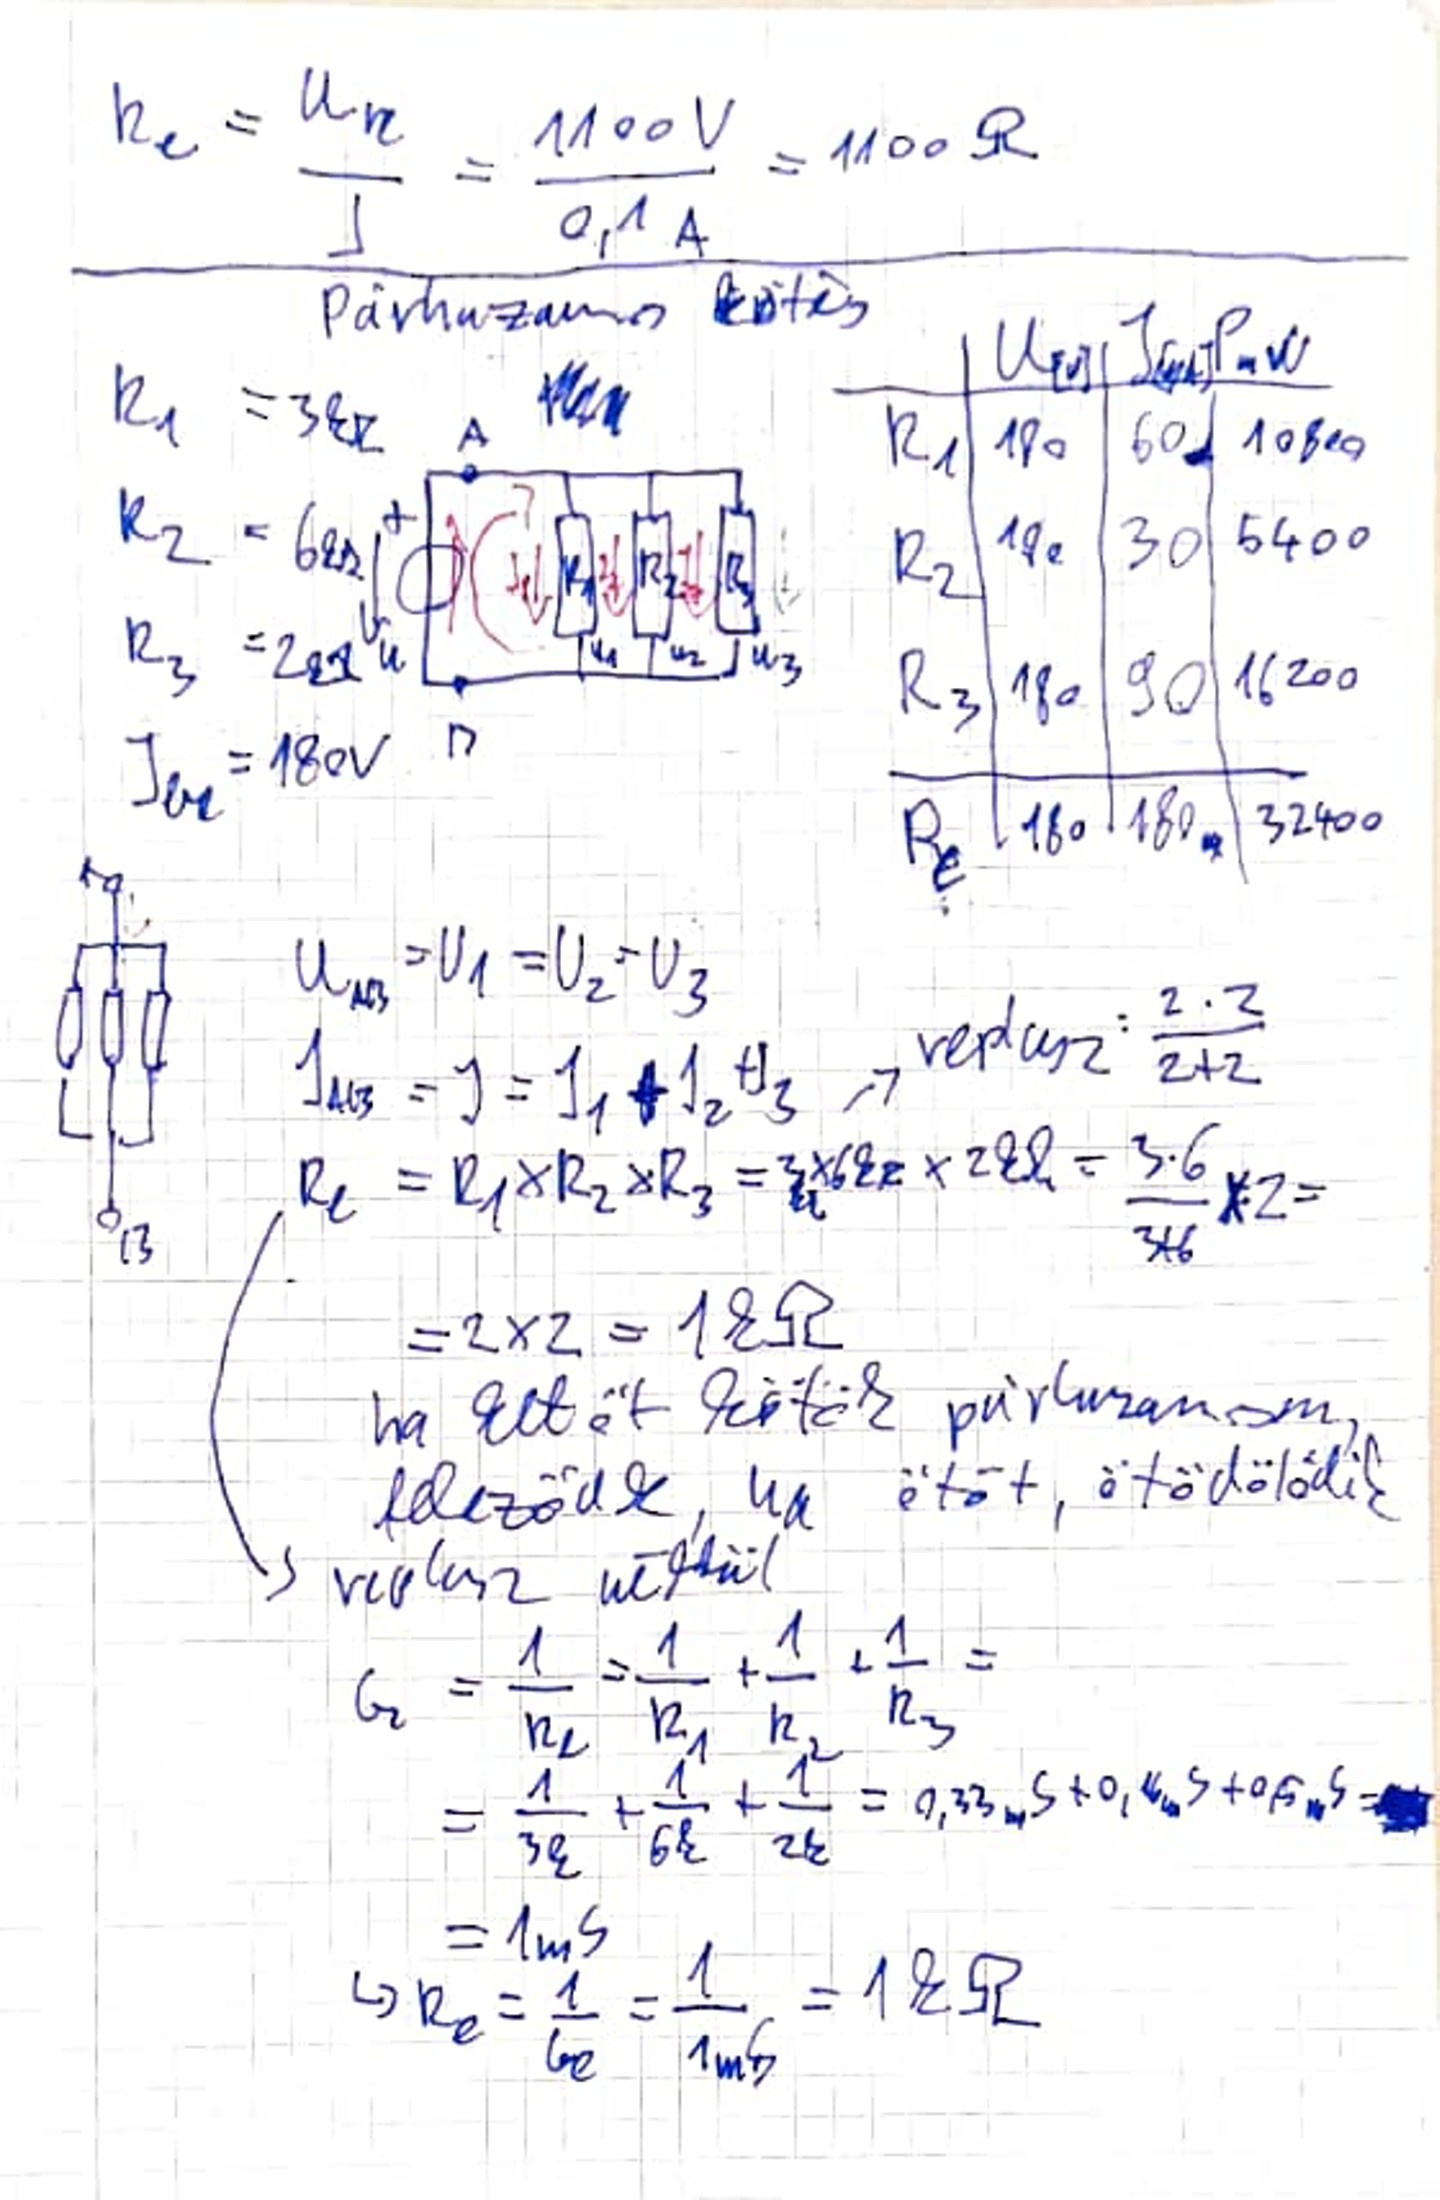 Re = UR / I = 1100V / 0,1 A = 1100 Ω
Párhuzamos kötés
R1 = 3kΩ
R2 = 6kΩ
R3 = 2kΩ
A
+
U
I1
R1
R2
R3
U1
U2
U3
= 180V
U[V]
R1 180 60 10800
R2 180 30 5400
R3 180 90 16200
Re 180 180 32400
B
UAB = U1 = U2 = U3
IAB = I = I1 + I2 + I3 → replusz: 2·2 / 2+2
Re = R1 × R2 × R3 = 3k × 6kΩ × 2kΩ = 3·6 / 3+6 × 2 =
= 2×2 = 1kΩ
ha kettőt kötök párhuzamosan,
feleződik, ha ötöt, ötödölődik
replusz nélkül
Ge = 1/Re = 1/R1 + 1/R2 + 1/R3 =
= 1/3k + 1/6k + 1/2k = 0,33mS + 0,16mS + 0,5mS =
= 1mS
↳ Re = 1/Ge = 1/1mS = 1kΩ